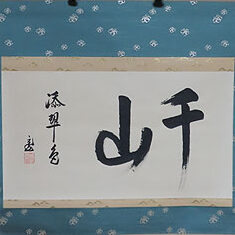 千山
添翠色